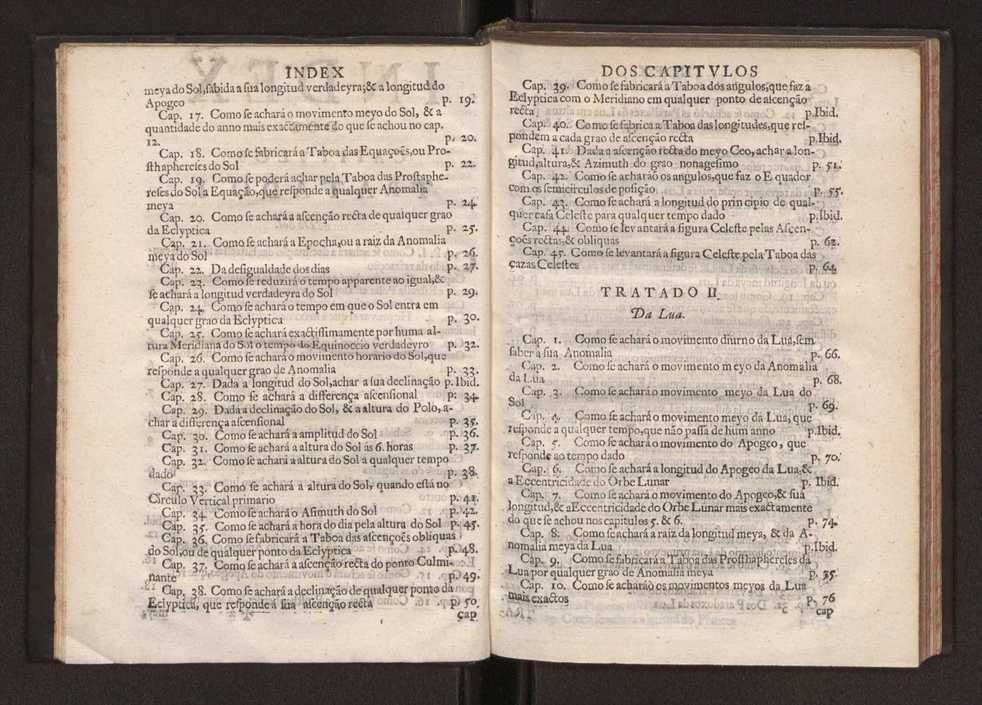 INDEX
meya do Sol, sabida a sua longitud verdadeyra; & a longitud do
Apogeo p. 19.
Cap. 17. Como se achará o movimento meyo do Sol, & a
quantidade do anno mais exactamente do que se achou no cap.
12. p. 20.
Cap. 18. Como se fabricará a Taboa das Equaçoẽs, ou Pro-
sthaphereses do Sol p. 22.
Cap. 19. Como se poderá achar pela Taboa das Prostaphe-
reses do Sol a Equação, que responde a qualquer Anomalia
meya p. 24.
Cap. 20. Como se achará a ascenção recta de qualquer grao
da Eclyptica p. 25.
Cap. 21. Como se achará a Epocha, ou a raiz da Anomalia
meya do Sol p. 26.
Cap. 22. Da desigualdade dos dias p. 27.
Cap. 23. Como se reduzirá o tempo apparente ao igual, &
se achará a longitud verdadeyra do Sol p. 29.
Cap. 24. Como se achará o tempo em que o Sol entra em
qualquer grao da Eclyptica p. 30.
Cap. 25. Como se achará exactissimamente por huma al-
tura Meridiana do Sol o tempo do Equinoccio verdadeyro p. 32.
Cap. 26. Como se achará o movimento horario do Sol, que
responde a qualquer grao de Anomalia p. 33.
Cap. 27. Dada a longitud do Sol, achar a sua declinação p. Ibid.
Cap. 28. Como se achará a differença ascensional p. 34.
Cap. 29. Dada a declinação do Sol, & a altura do Polo, a-
char a differença ascensional p. 35.
Cap. 30. Como se achará a amplitud do Sol p. 36.
Cap. 31. Como se achará a altura do Sol ás 6. horas p. 37.
Cap. 32. Como se achará a altura do Sol a qualquer tempo
dado p. 38.
Cap. 33. Como se achará a altura do Sol, quando está no
Circulo Vertical primario p. 41.
Cap. 34. Como se achará o Asimuth do Sol p. 42.
Cap. 35. Como se achará a hora do dia pela altura do Sol p. 45.
Cap. 36. Como se fabricará a Taboa das ascençoẽs obliquas
do Sol, ou de qualquer ponto da Eclyptica p. 48.
Cap. 37. Como se achará a ascenção recta do ponto Culmi-
nante p. 49.
Cap. 38. Como se achará a declinação de qualquer ponto da
Eclyptica, que responde á sua ascenção recta p. 50.
cap
DOS CAPITVLOS
Cap. 39. Como se fabricará a Taboa dos angulos, que faz a
Eclyptica com o Meridiano em qualquer ponto de ascenção
recta p. Ibid.
Cap. 40. Como se fabrica a Taboa das longitudes, que res-
pondem a cada grao de ascenção recta p. Ibid.
Cap. 41. Dada a ascenção recta do meyo Ceo, achar a lon-
gitud, altura, & Azimuth do grao nonagesimo p. 51.
Cap. 42. Como se acharão os angulos, que faz o Equador
com os semicirculos de posição p. 55.
Cap. 43. Como se achará a longitud do principio de qual-
quer casa Celeste para qualquer tempo dado p. Ibid.
Cap. 44. Como se levantará a figura Celeste pelas Ascen-
çoẽs rectas, & obliquas p. 62.
Cap. 45. Como se levantará a figura Celeste pela Taboa das
cazas Celestes p. 64.
TRATADO II.
Da Lua.
Cap. 1. Como se achará o movimento diurno da Lua, sem
saber a sua Anomalia p. 66.
Cap. 2. Como se achará o movimento meyo da Anomalia
da Lua p. 68.
Cap. 3. Como se achará o movimento meyo da Lua do
Sol p. 69.
Cap. 4. Como se achará o movimento meyo da Lua, que
responde a qualquer tempo, que não passa de hum anno p. Ibid.
Cap. 5. Como se achará o movimento do Apogeo, que
responde ao tempo dado p. 70.
Cap. 6. Como se achará a longitud do Apogeo da Lua, &
a Eccentricidade do Orbe Lunar p. Ibid.
Cap. 7. Como se achará o movimento do Apogeo, & sua
longitud, & a Eccentricidade do Orbe Lunar mais exactamente
do que se achou nos capitulos 5. & 6. p. 74.
Cap. 8. Como se achará a raiz da longitud meya, & da A-
nomalia meya da Lua p. Ibid.
Cap. 9. Como se fabricará a Taboa das Prosthaphereses da
Lua por qualquer grao de Anomalia meya p. 35.
Cap. 10. Como se acharão os movimentos meyos da Lua
mais exactos p. 76
cap